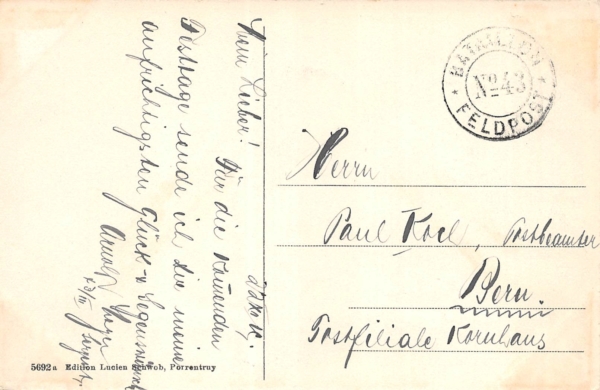 Mein Lieber!
Für die Komenden
Festtage sende ich dir meine
aufrichtigsten Glück- & Segenswünsche
Arnold
BATAILLON
No 43
FELDPOST
Herrn
Paul Koch, Postbeamter
Bern.
Postfiliale Kornhaus
5692a Edition Lucien Schwob, Porrentruy